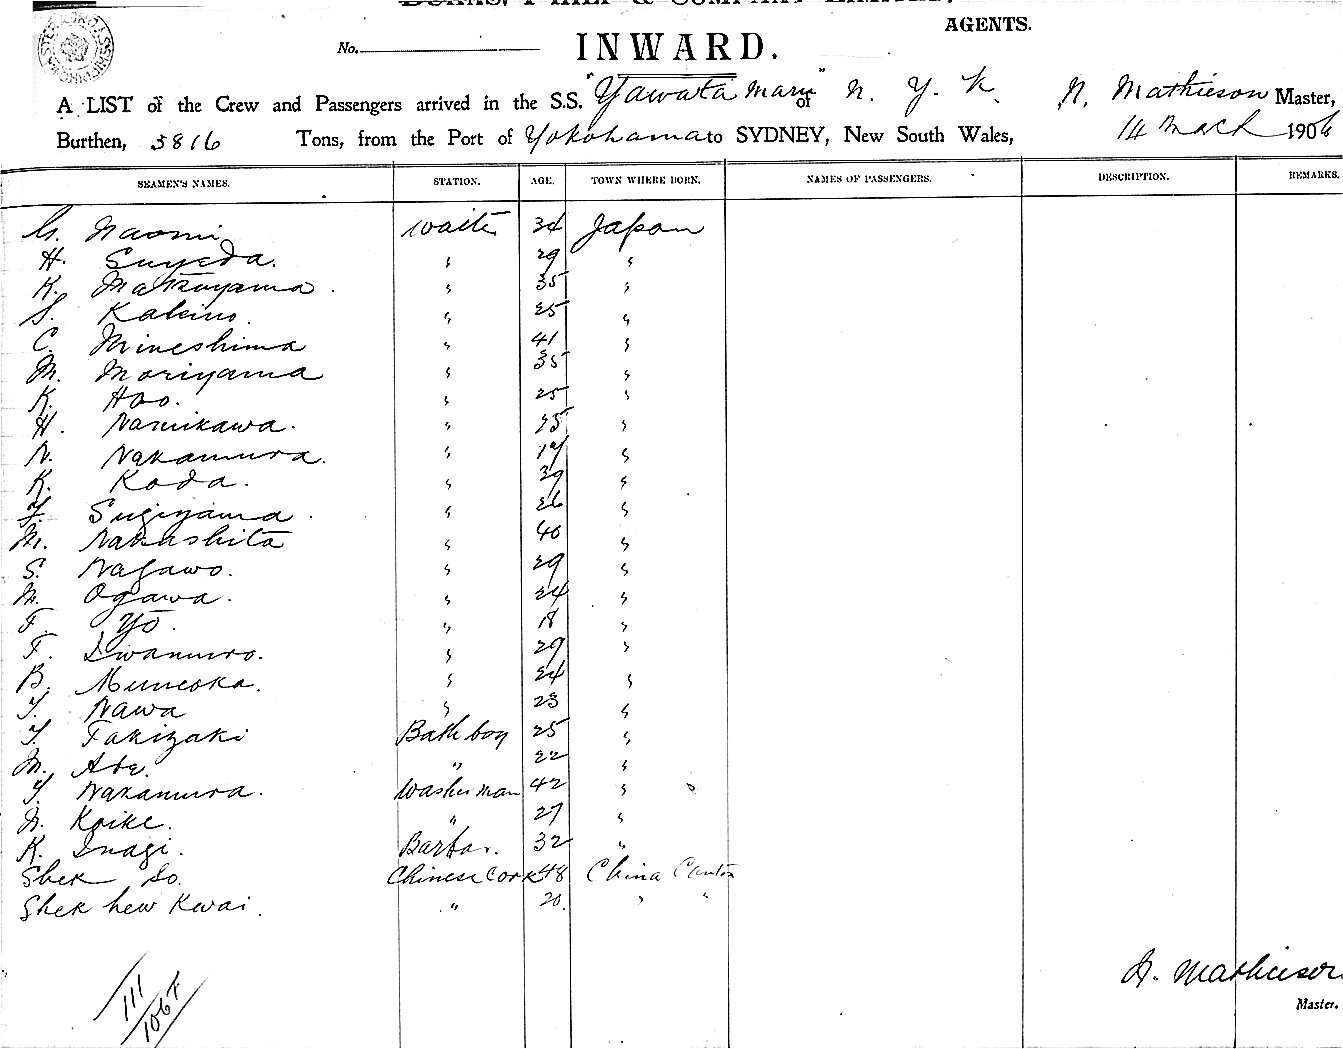 BURNS, PHILP & COMPANY LIMITED.
AGENTS.
No.
INWARD.
A LIST of the Crew and Passengers arrived in the S.S. "Yawata Maru" of N. Y. K. N. Mathieson Master,
Burthen, 3816 Tons, from the Port of Yokohama to SYDNEY, New South Wales, 14 March 1906
SEAMEN'S NAMES. STATION. AGE. TOWN WHERE BORN. NAMES OF PASSENGERS. DESCRIPTION. REMARKS.
G. Naomi waiter 34 Japan
H. Suyeda. " 29 "
K. Matsuyama. " 35 "
S. " 25 "
C. Mineshima " 41 "
M. Moriyama " 35 "
K. " 25 "
H. Namikawa. " 25 "
N. Nakamura. " 17 "
K. Koda. " 39 "
Sugiyama. " 26 "
M. Nakashita " 40 "
S. Nagawo. " 29 "
M. Ogawa. " 24 "
F. Yo. " 18 "
F. Iwamuro. " 29 "
B. Muneoka. " 24 "
T. Nawa " 23 "
T. Takizaki Bath boy 25 "
M. Abe. " 22 "
T. Nakamura. Washerman 42 "
N. Koike. " 27 "
K. Inagi. Barbar. 32 "
Shek So. Chinese Cook 48 China Canton
Shek hew Kwai. " 20. " "
N. Mathieson
Master.
111
106+